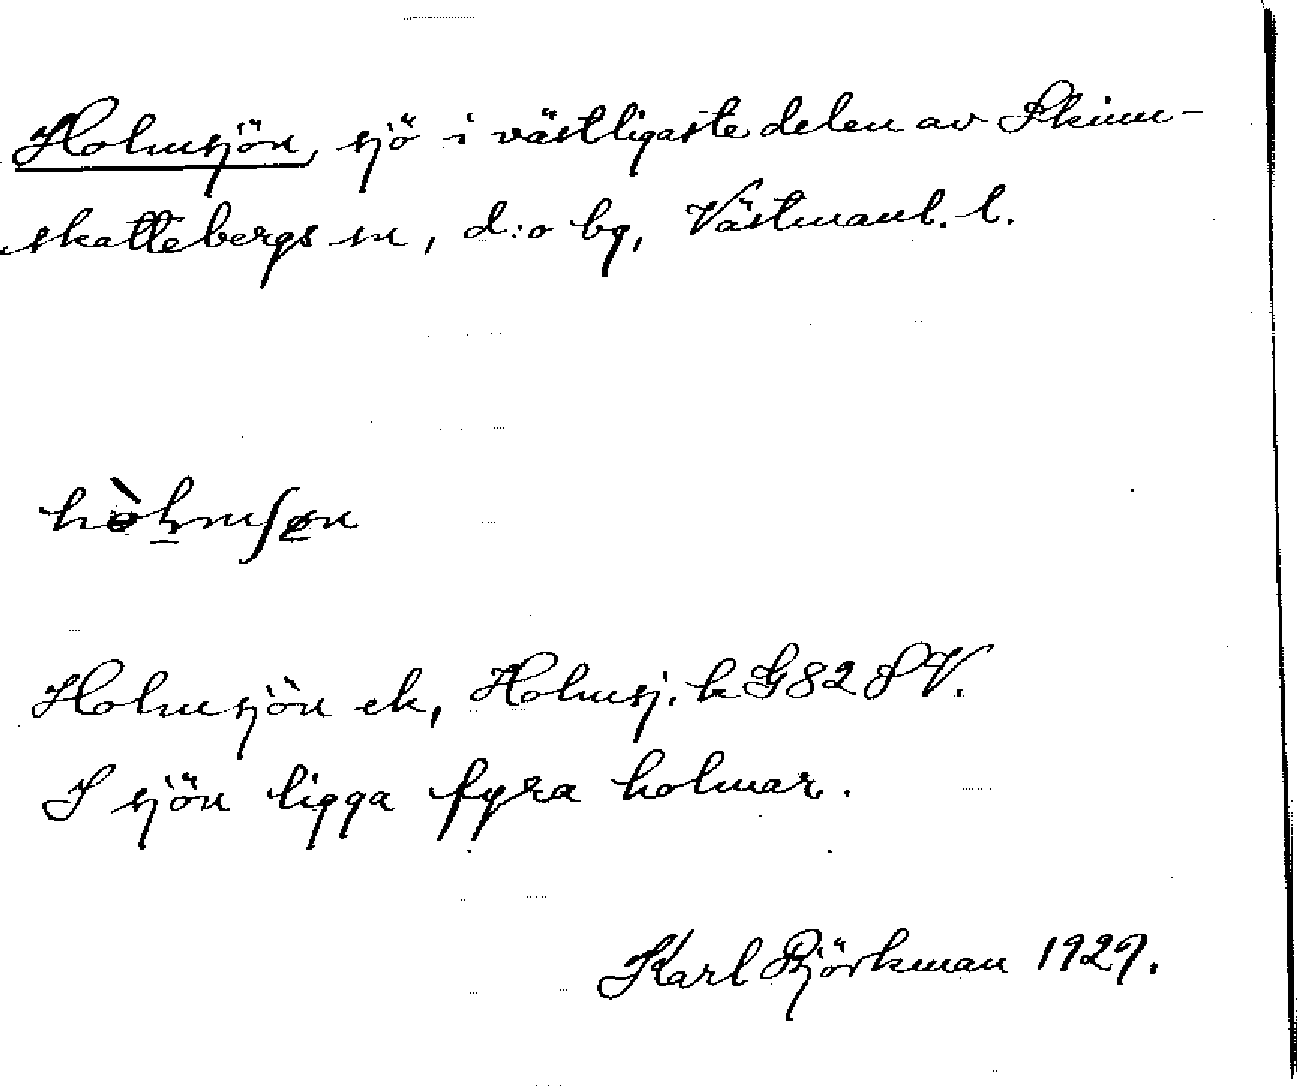 Holmsjön, sjö i västligaste delen av Skinn-
skattebergs sn, d:o bg, Västmanl. l.
Holmsjön ek, Holmsj. k G82 SV.
I sjön ligga fyra holmar.
Karl Björkman 1929.